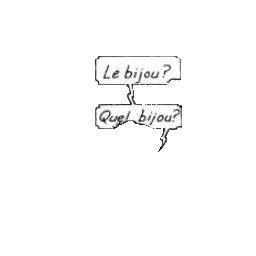 Le bijou?
Quel bijou?